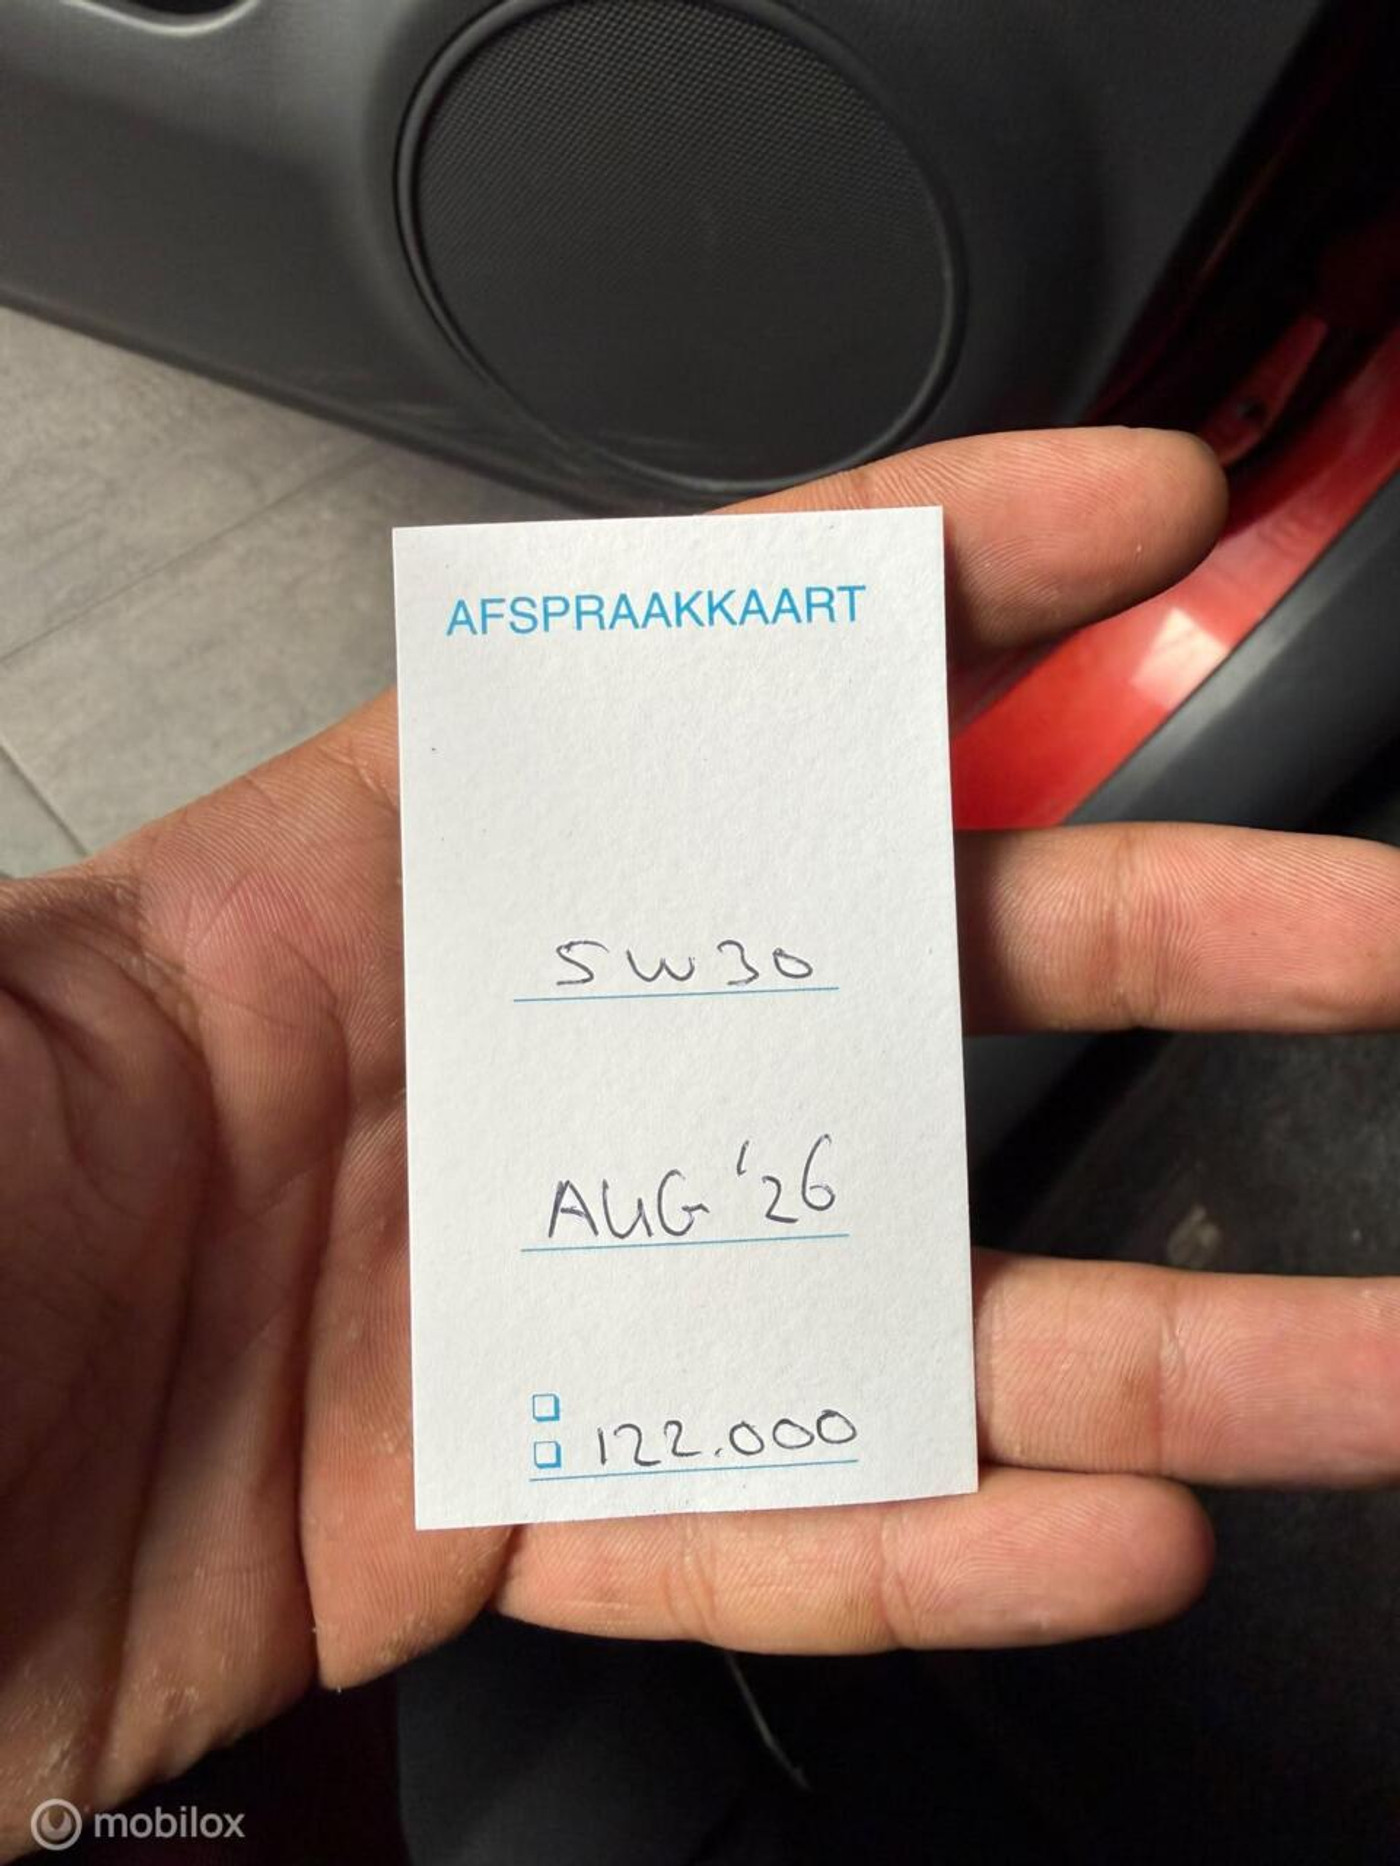 AFSPRAAKKAART
5W30
AUG '26
122.000
mobilox